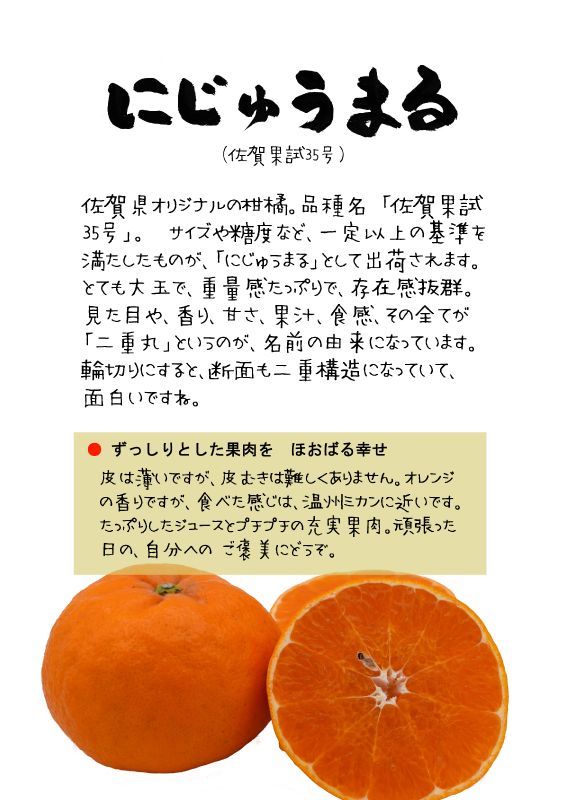 にじゅうまる
(佐賀果試35号)
佐賀県オリジナルの柑橘。品種名 「佐賀果試
35号」。 サイズや糖度など、一定以上の基準を
満たしたものが、「にじゅうまる」として出荷されます。
とても大玉で、重量感たっぷりで、存在感抜群。
見た目や、香り、甘さ、果汁、食感、その全てが
「二重丸」というのが、名前の由来になっています。
輪切りにすると、断面も二重構造になっていて、
面白いですね。
● ずっしりとした果肉を ほおばる幸せ
皮は薄いですが、皮むきは難しくありません。オレンジ
の香りですが、食べた感じは、温州ミカンに近いです。
たっぷりしたジュースとプチプチの充実果肉。頑張った
日の、自分への ご褒美にどうぞ。